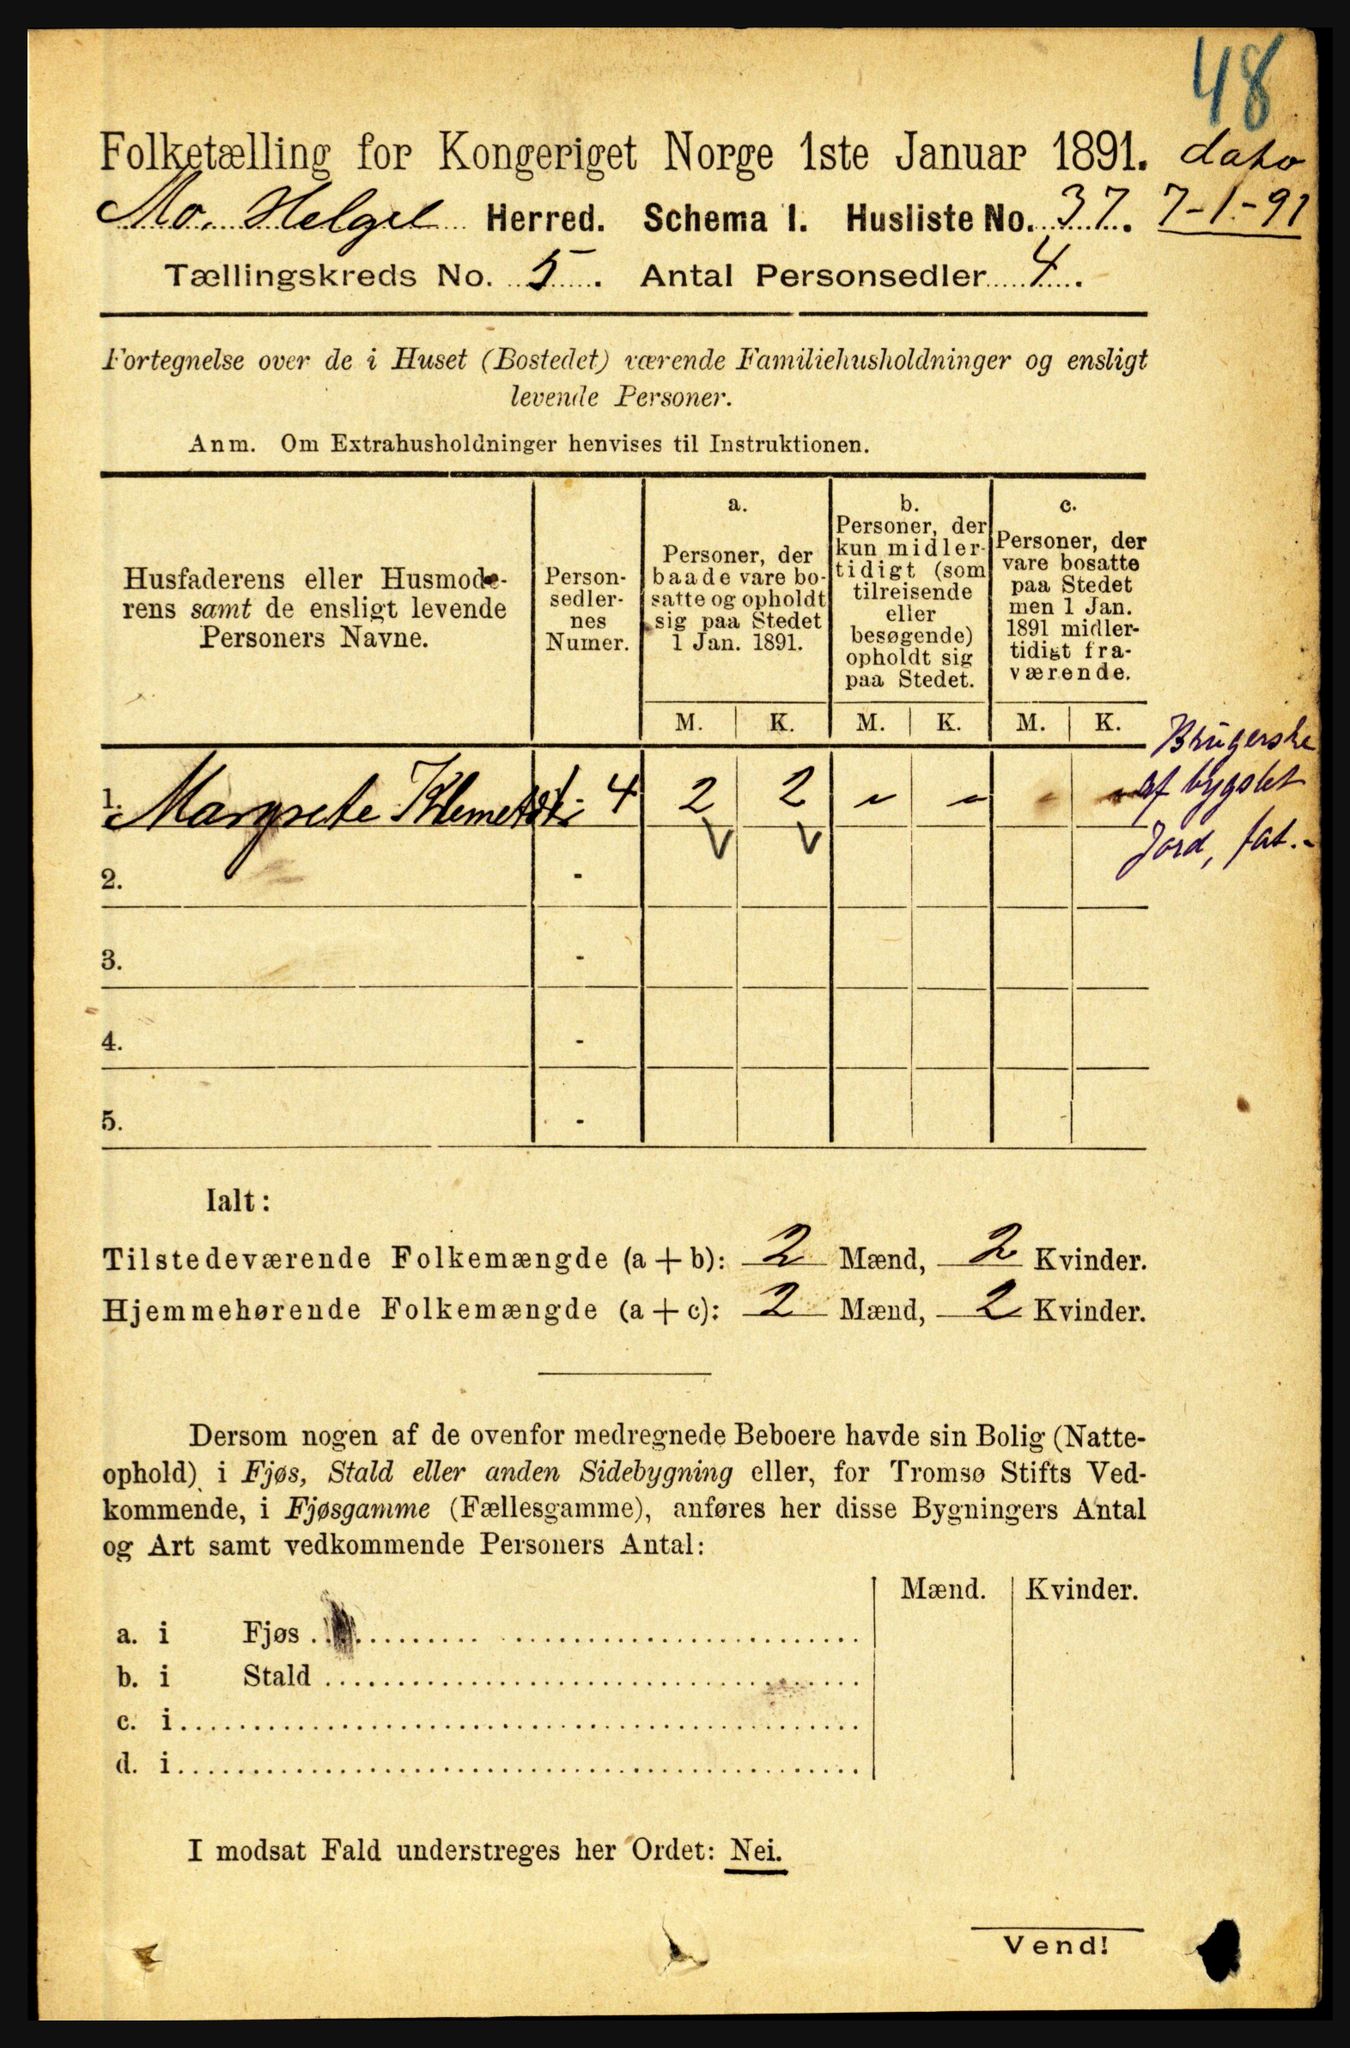 48
Folketælling for Kongeriget Norge 1ste Januar 1891. dato
Mo. Helgel Herred. Schema I. Husliste No. 37. 7-1-91
Tællingskreds No. 5. Antal Personsedler 4.
Fortegnelse over de i Huset (Bostedet) værende Familiehusholdninger og ensligt
levende Personer.
Anm. Om Extrahusholdninger henvises til Instruktionen.
Husfaderens eller Husmode-
rens samt de ensligt levende
Personers Navne.
Person-
sedler-
nes
Numer.
a.
Personer, der
baade vare bo-
satte og opholdt
sig paa Stedet
1 Jan. 1891.
b.
Personer, der
kun midler-
tidigt (som
tilreisende
eller
besøgende)
opholdt sig
paa Stedet.
c.
Personer, der
vare bosatte
paa Stedet
men 1 Jan.
1891 midler-
tidigt fra-
værende.
M. K. M. K. M. K.
1. Margrete Klemetsd. 1 - 4 2 2 „ „ „ „
V V
Brugerske
af bygslet
Jord, fat.-
2. -
3. -
4. -
5. -
Ialt:
Tilstedeværende Folkemængde (a + b): 2 Mænd, 2 Kvinder.
Hjemmehørende Folkemængde (a + c): 2 Mænd, 2 Kvinder.
Dersom nogen af de ovenfor medregnede Beboere havde sin Bolig (Natte-
ophold) i Fjøs, Stald eller anden Sidebygning eller, for Tromsø Stifts Ved-
kommende, i Fjøsgamme (Fællesgamme), anføres her disse Bygningers Antal
og Art samt vedkommende Personers Antal:
Mænd. Kvinder.
a. i Fjøs
b. i Stald
c. i
d. i
I modsat Fald understreges her Ordet: Nei.
Vend!